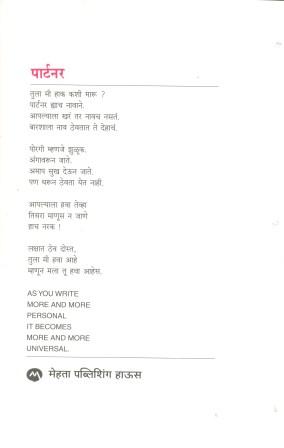 पार्टनर
तुला मी हाक कशी मारू ?
पार्टनर ह्याच नावाने.
आपल्याला खरं तर नावच नसतं.
बारशाला नाव ठेवतात ते देहाचं.
पोरगी म्हणजे झुळूक.
अंगावरून जाते.
अमाप सुख देऊन जाते.
पण धरून ठेवता येत नाही.
आपल्याला हवा तेव्हा
तिसरा माणूस न जाणे
हाच नरक !
लक्षात ठेव दोस्त,
तुला मी हवा आहे
म्हणून मला तू हवा आहेस.
AS YOU WRITE
MORE AND MORE
PERSONAL
IT BECOMES
MORE AND MORE
UNIVERSAL.
मेहता पब्लिशिंग हाऊस